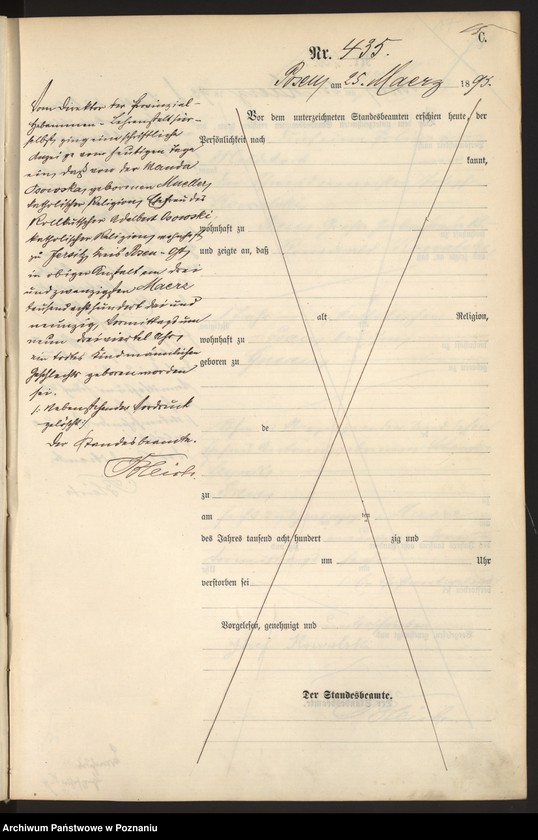 C.
Nr. 435.
Posen, am 25. Maerz 1893.
Vom Direktor der Provinzial-
Hebammen-Lehranstalt hier-
selbst ging eine schriftliche
Anzeige vom heutigen Tage
ein, daß von der Wanda
Osowska, geborenen Mueller,
katholischer Religion, Ehefrau des
Adalbert Osowski
katholischer Religion, wohnhaft
zu Jersitz Kreis Posen-Ost,
in obiger Anstalt am drei
und zwanzigsten Maerz
tausend acht hundert drei und
neunzig, Vormittags um
neun dreiviertel Uhr,
ein todtes Kind männlichen
Geschlechts geboren worden
sei.
/: Nebenstehender Vordruck
gelöscht :/
Der Standesbeamte.
Vor dem unterzeichneten Standesbeamten erschien heute, der
Persönlichkeit nach
kannt,
wohnhaft zu
und zeigte an, daß
alt Religion,
wohnhaft zu
geboren zu
de
zu
am ten
des Jahres tausend acht hundert zig und
um Uhr
verstorben sei
Vorgelesen, genehmigt und
Der Standesbeamte.
Archiwum Państwowe w Poznaniu